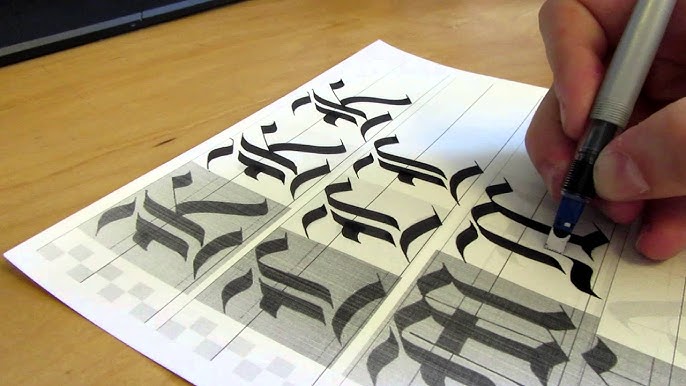 K K K
L L L
M